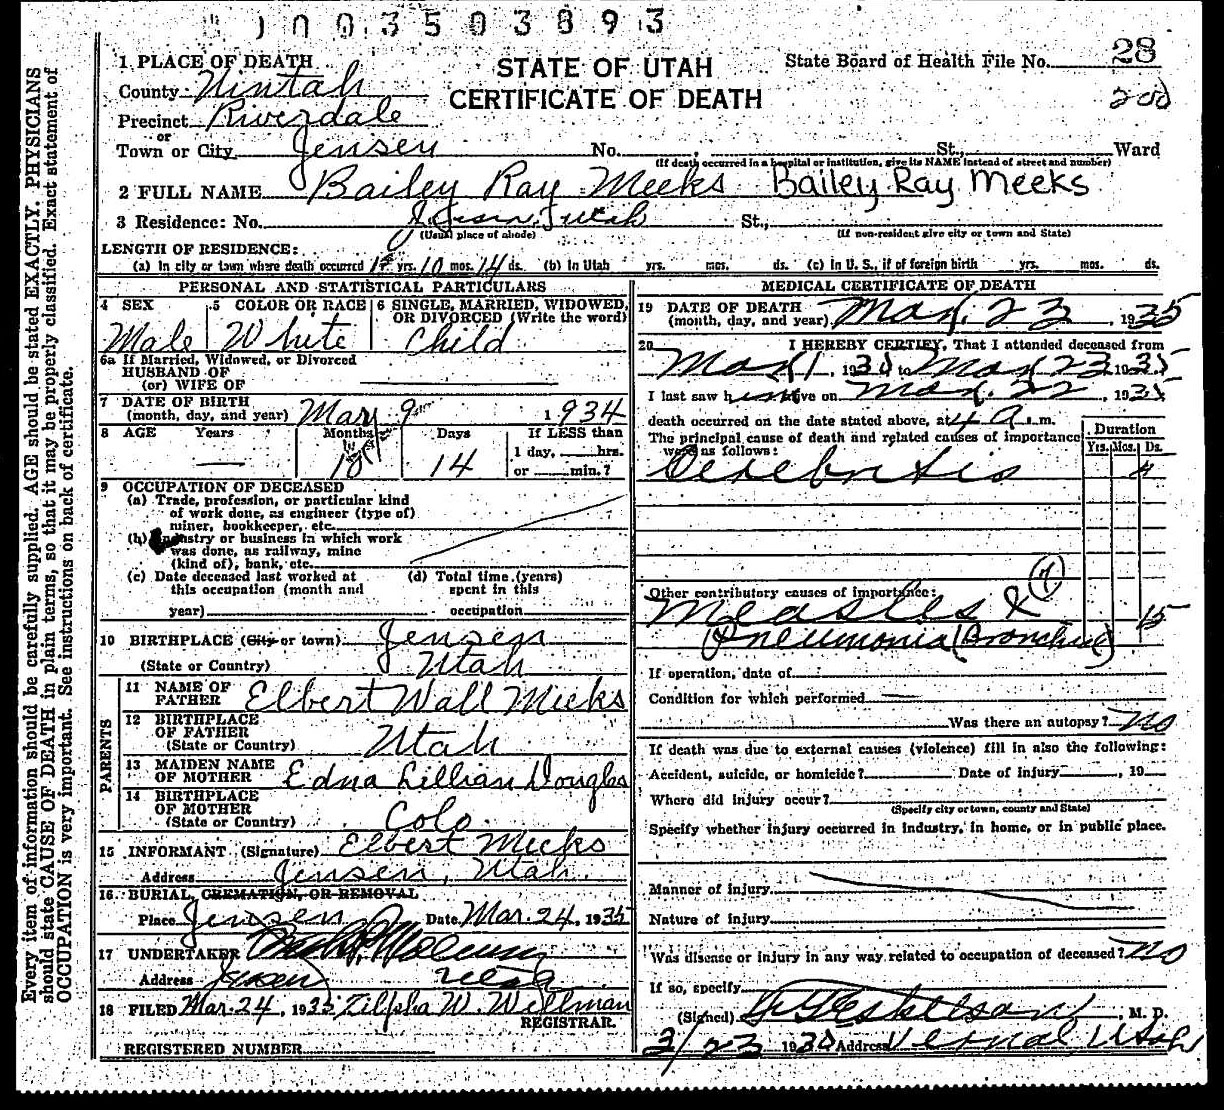 003503893
1 PLACE OF DEATH
STATE OF UTAH
CERTIFICATE OF DEATH
State Board of Health File No. 28
200
County Uintah
Precinct Riverdale
or
Town or City Jensen No. St., Ward
(If death occurred in a hospital or institution, give its NAME instead of street and number)
2 FULL NAME Bailey Ray Meeks Bailey Ray Meeks
3 Residence: No. Jensen, Utah St.,
(Usual place of abode) (If non-resident give city or town and State)
LENGTH OF RESIDENCE:
(a) In city or town where death occurred yrs. 10 mos. 14 ds. (b) In Utah yrs. mos. ds. (c) In U. S., if of foreign birth yrs. mos. ds.
PERSONAL AND STATISTICAL PARTICULARS
4 SEX Male
5 COLOR OR RACE White
6 SINGLE, MARRIED, WIDOWED, OR DIVORCED (Write the word) Child
6a If Married, Widowed, or Divorced
HUSBAND OF
(or) WIFE OF
7 DATE OF BIRTH
(month, day, and year) May 9 1934
8 AGE Years Months Days If LESS than
10 14 1 day, hrs.
or min.?
9 OCCUPATION OF DECEASED
(a) Trade, profession, or particular kind
of work done, as engineer (type of)
miner, bookkeeper, etc.
(b) Industry or business in which work
was done, as railway, mine
(kind of), bank, etc.
(c) Date deceased last worked at
this occupation (month and
year)
(d) Total time (years)
spent in this
occupation
10 BIRTHPLACE (City or town) Jensen
(State or Country) Utah
PARENTS
11 NAME OF
FATHER Elbert Wall Meeks
12 BIRTHPLACE
OF FATHER
(State or Country) Utah
13 MAIDEN NAME
OF MOTHER Edna Lillian Douglas
14 BIRTHPLACE
OF MOTHER
(State or Country) Colo.
15 INFORMANT (Signature) Elbert Meeks
Address Jensen, Utah.
16. BURIAL, CREMATION, OR REMOVAL
Place Jensen Date Mar. 24, 1935
17 UNDERTAKER
Address Jensen Utah
18 FILED Mar. 24, 1935 Zilpha W. Wellman
REGISTRAR.
REGISTERED NUMBER
MEDICAL CERTIFICATE OF DEATH
19 DATE OF DEATH
(month, day, and year) Mar. 23, 1935
20 I HEREBY CERTIFY, That I attended deceased from
Mar 1, 193 to Mar 23, 1935
I last saw him alive on Mar. 22, 1935
death occurred on the date stated above, at 4 a.m.
The principal cause of death and related causes of importance
were as follows:
Duration
Yrs. Mos. Ds.
Cerebritis
Other contributory causes of importance:
Measles &
Pneumonia (Bronchial) 15
If operation, date of
Condition for which performed
Was there an autopsy? no
If death was due to external causes (violence) fill in also the following:
Accident, suicide, or homicide? Date of injury , 19
Where did injury occur?
(Specify city or town, county and State)
Specify whether injury occurred in industry, in home, or in public place.
Manner of injury
Nature of injury
Was disease or injury in any way related to occupation of deceased? no
If so, specify
(Signed) , M. D.
3/23 193 Address Vernal, Utah
Every item of information should be carefully supplied. AGE should be stated EXACTLY. PHYSICIANS
should state CAUSE OF DEATH in plain terms, so that it may be properly classified. Exact statement of
OCCUPATION is very important. See instructions on back of certificate.